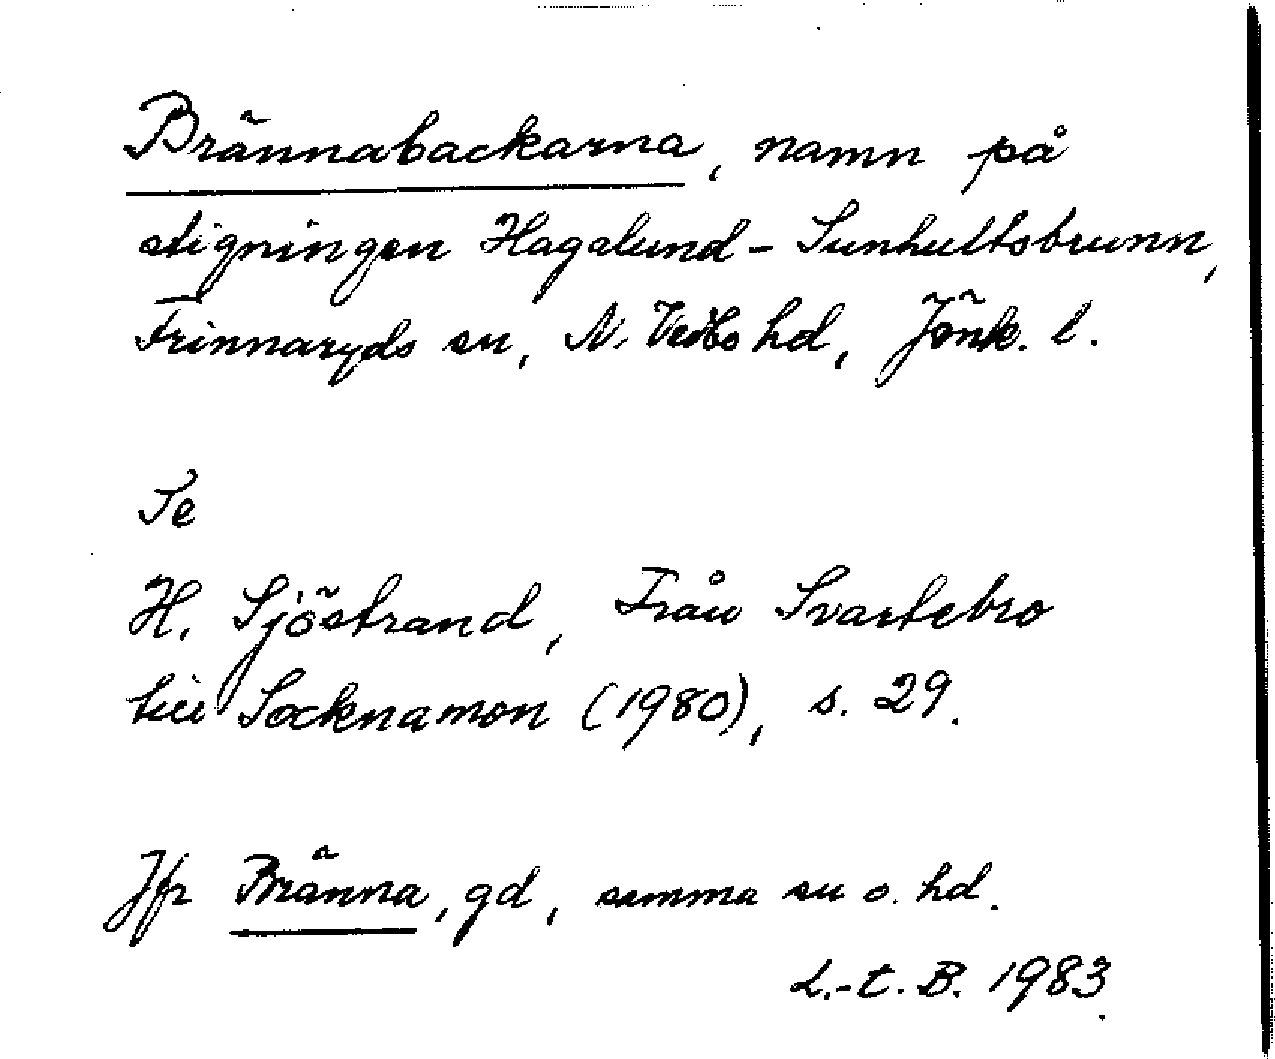 Brännabackarna, namn på
stigningen Hagalund - Sunhultsbrunn,
Frinnaryds sn, N. Vedbo hd, Jönk. l.
Se
H. Sjöstrand, Från Svartebro
till Socknamon (1980), s. 29.
Jfr Bränna, gd, samma sn o. hd.
L.-E. B. 1983